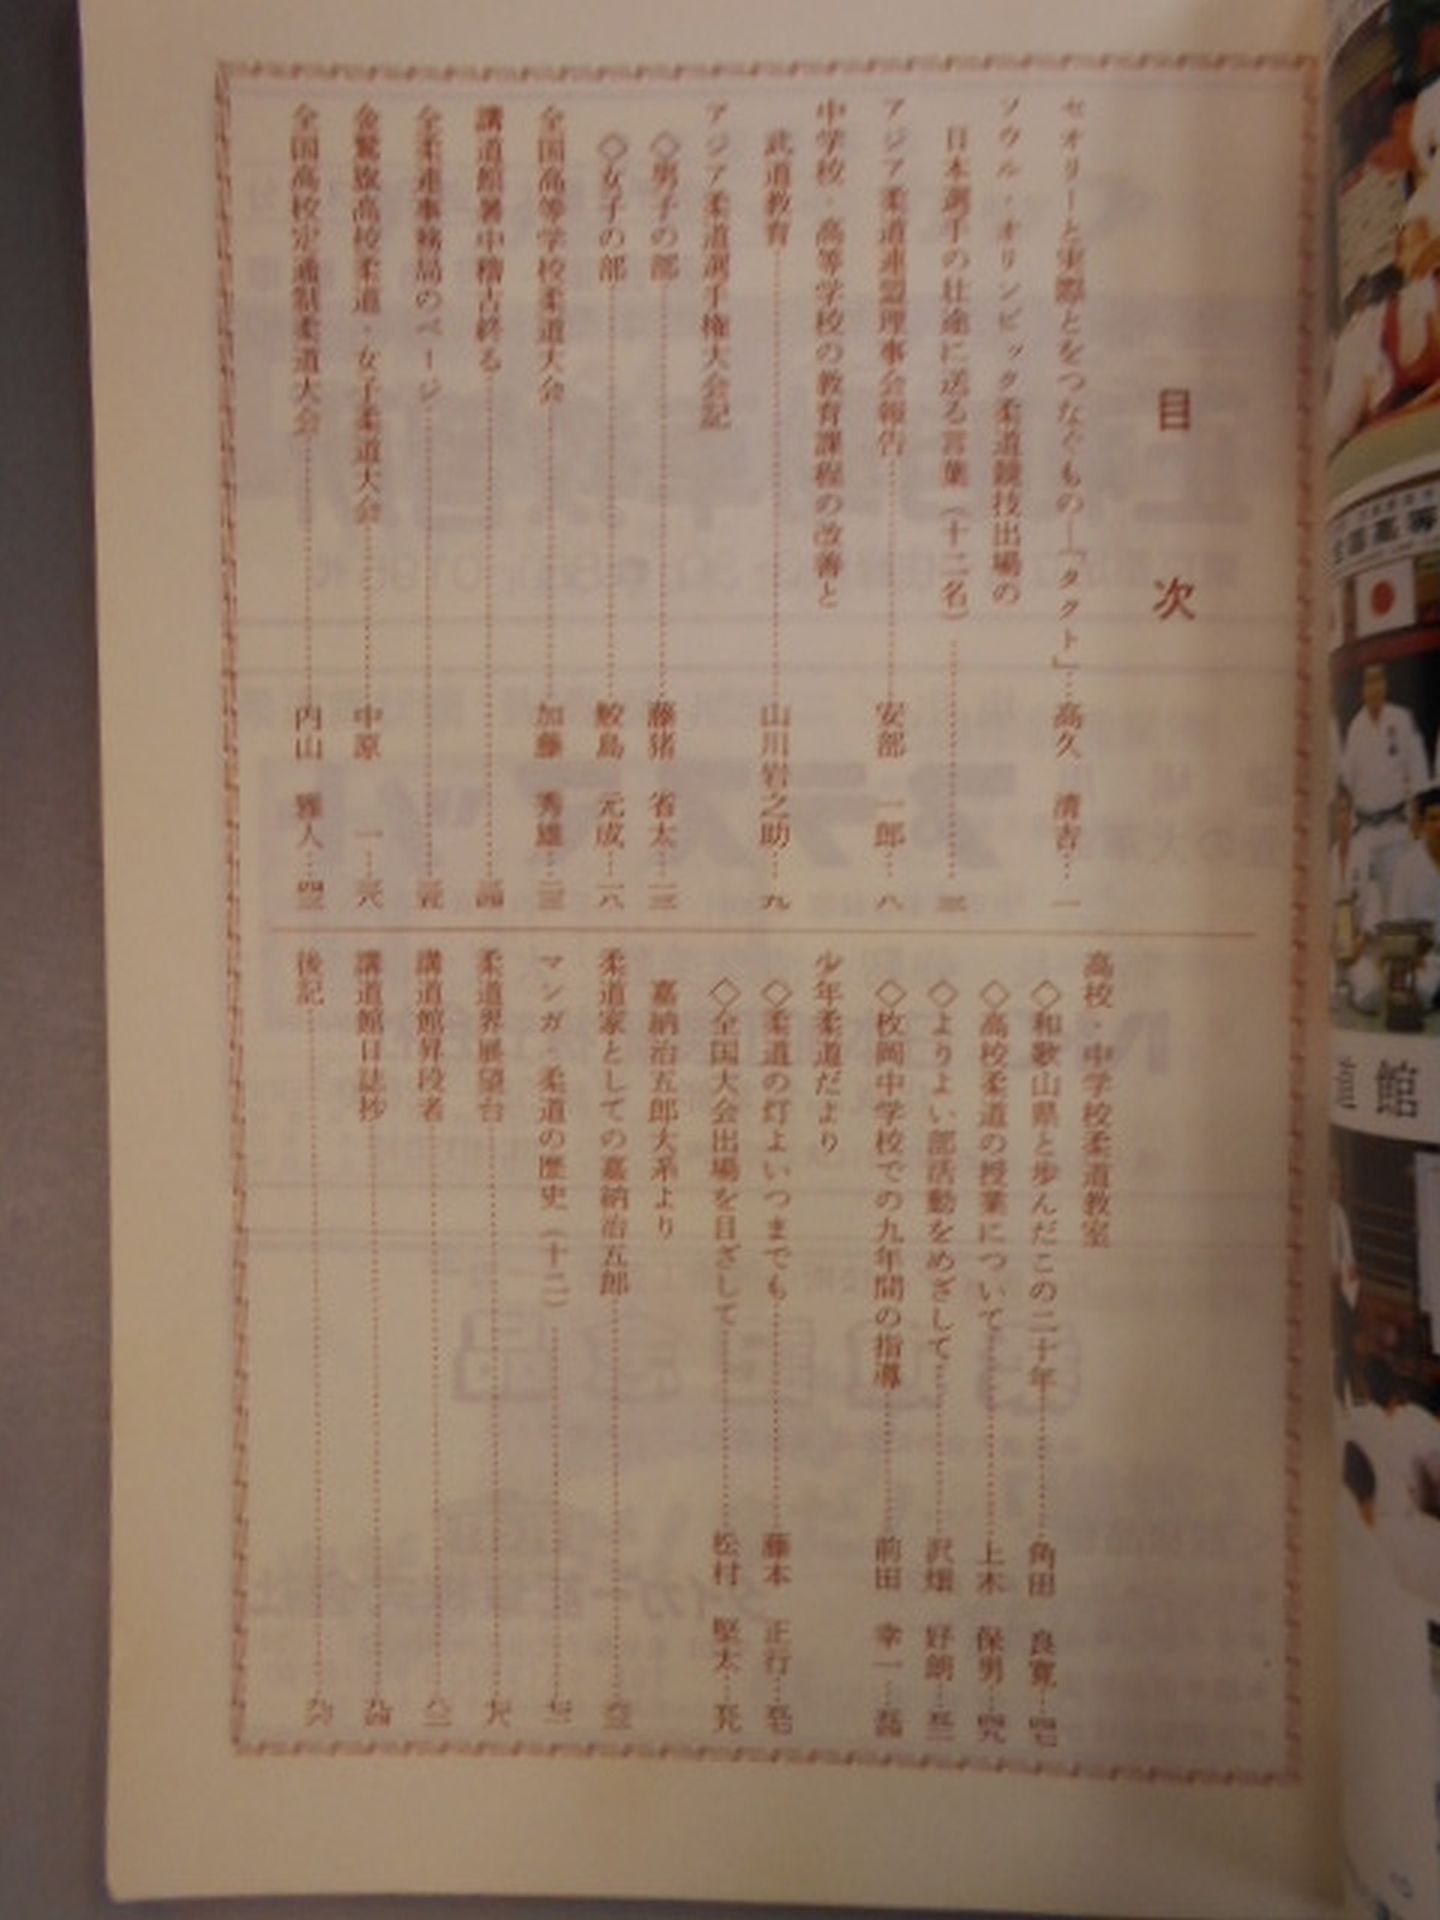 目次
セオリーと実際とをつなぐもの―「タクト」…高久 清吉…一
ソウル・オリンピック柔道競技出場の
日本選手の壮途に送る言葉(十二名)…三
アジア柔道連盟理事会報告…安部 一郎…八
中学校・高等学校の教育課程の改善と
武道教育…山川岩之助…九
アジア柔道選手権大会記
◇男子の部…藤猪 省太…一三
◇女子の部…鮫島 元成…一八
全国高等学校柔道大会…加藤 秀雄…二三
講道館暑中稽古終る…三四
全柔連事務局のページ…三五
金鷲旗高校柔道・女子柔道大会…中原 一…三八
全国高校定通制柔道大会…内山 雅人…四三
高校・中学校柔道教室
◇和歌山県と歩んだこの二十年…角田 良寛…四七
◇高校柔道の授業について…上木 保男…四九
◇よりよい部活動をめざして…沢畑 好朗…五二
◇枚岡中学校での九年間の指導…前田 幸一…五四
少年柔道だより
◇柔道の灯よいつまでも…藤本 正行…五七
◇全国大会出場を目ざして…松村 堅太…五九
嘉納治五郎大系より
柔道家としての嘉納治五郎…六三
マンガ・柔道の歴史(十二)…七一
柔道界展望台…七八
講道館昇段者…八二
講道館日誌抄…九四
後記…九六
全国高等
館